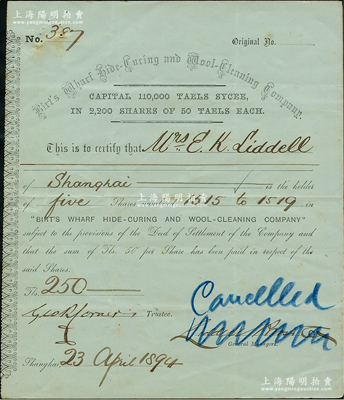 上海陽明拍賣
www.yangmingauction.com
No. 387
Original No.
Birt's Wharf Hide-Curing and Wool-Cleaning Company.
CAPITAL 110,000 TAELS SYCEE,
IN 2,200 SHARES OF 50 TAELS EACH.
This is to certify that Mrs. E. K. Liddell
of Shanghai is the holder
of five Shares numbered 1515 to 1519 in
"BIRT'S WHARF HIDE-CURING AND WOOL-CLEANING COMPANY"
subject to the provisions of the Deed of Settlement of the Company and
that the sum of Tls. 50 per Share has been paid in respect of the
said Shares.
Tls. 250
Cancelled
Trustee.
General Managers.
Shanghai, 23 April 1894
上海陽明拍賣